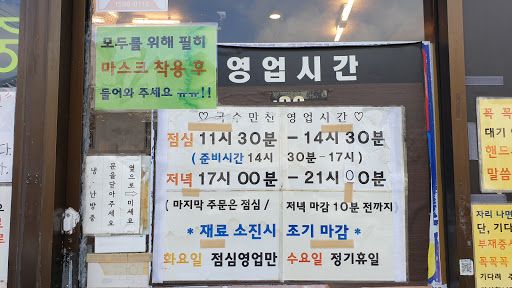 1599-0110
모두를 위해 필히
마스크 착용 후
들어와 주세요 ㅠㅠ!!
영업시간
♡ 국수만찬 영업시간 ♡
점심 11시 30분 - 14시 30분
( 준비시간 14시 30분 - 17시 )
저녁 17시 00분 - 21시 00분
( 마지막 주문은 점심 / 저녁 마감 10분 전까지 )
* 재료 소진시 조기 마감 *
화요일 점심영업만 수요일 정기휴일
옆으로 → 미세요
문을 닫아주세요
냉,난방중
꼭 꼭
대기
핸드
말씀
자리 나면
단, 기다
부재중시
꼭꼭꼭
기다려 주